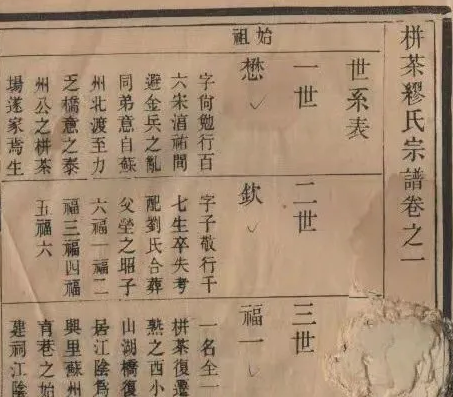 栟茶繆氏宗譜卷之一
世系表
始祖
一世
懋
字尙勉行百
六宋湻祐間
避金兵之亂
同弟意自蘇
州北渡至力
乏橋意之泰
州公之栟茶
場遂家焉生
二世
欽
字子敬行千
七生卒失考
配劉氏合葬
父塋之昭子
六福一福二
福三福四福
五福六
三世
福一
一名全一
栟茶復遷
熟之西小
山湖橋復
居江陰爲
與里蘇州
巷之始
建祠江陰